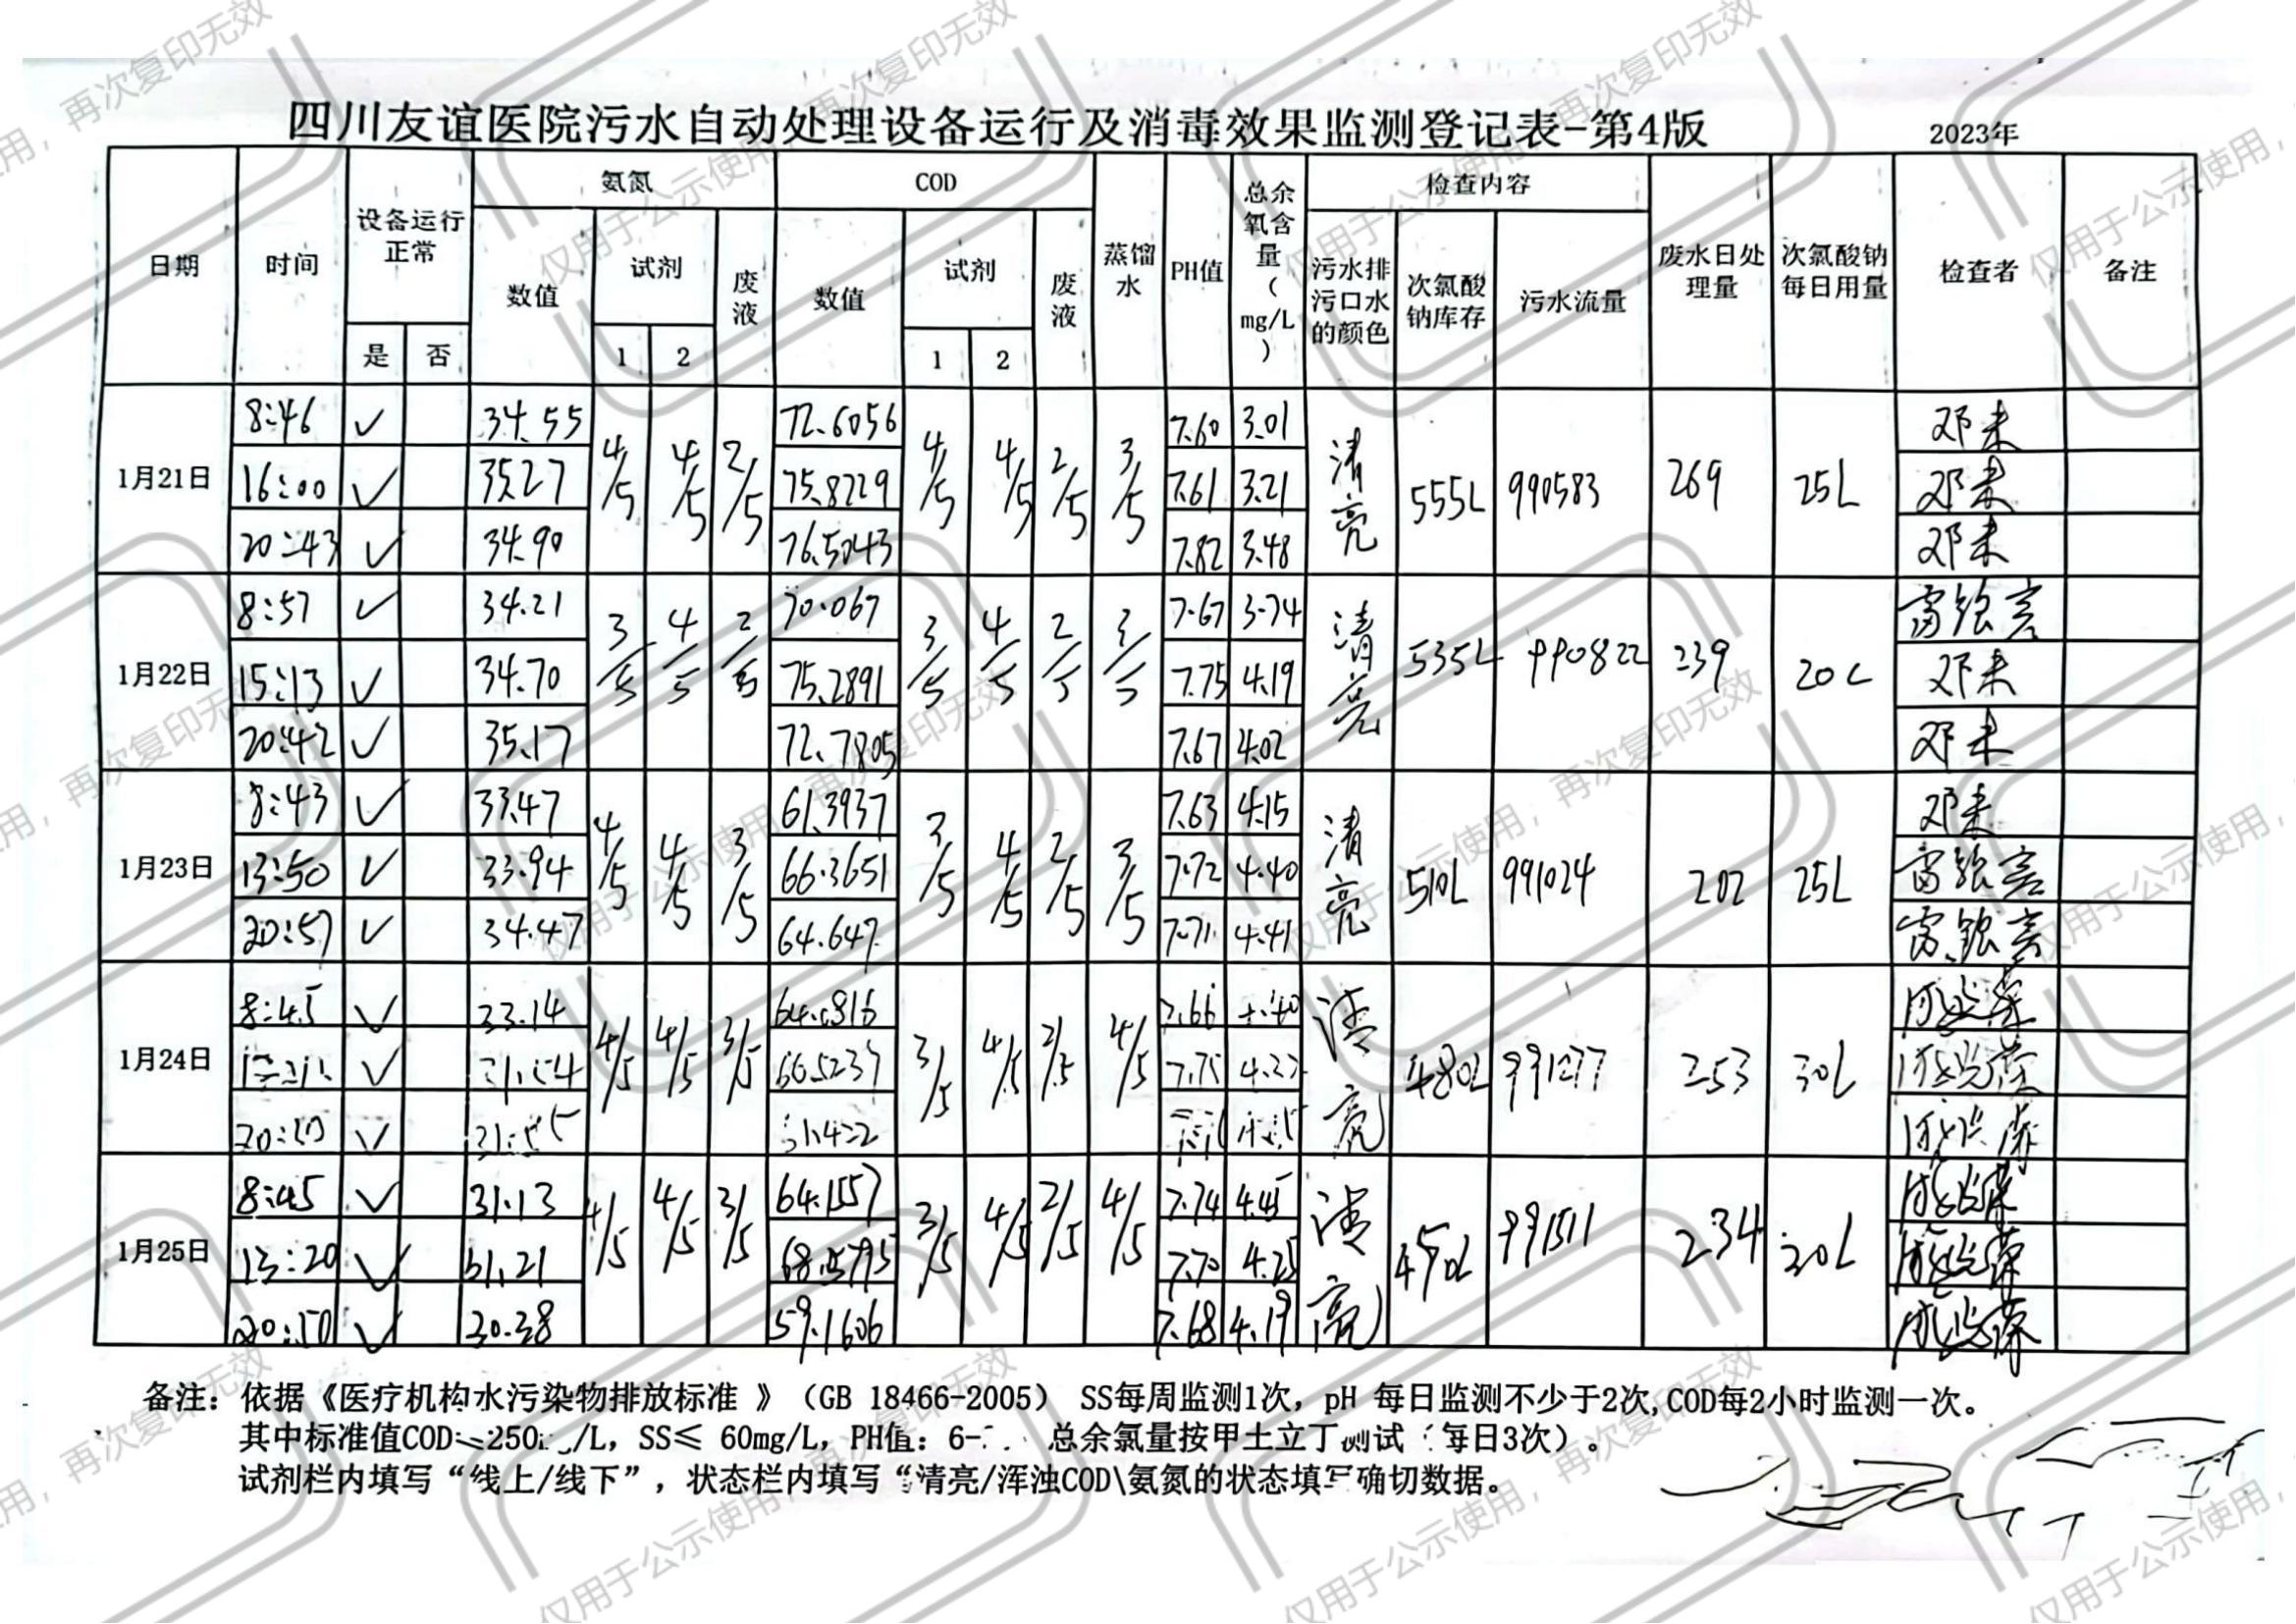 四川友谊医院污水自动处理设备运行及消毒效果监测登记表-第4版 2023年
日期 时间 设备运行正常 是 否 氨氮 数值 试剂 1 2 废液 COD 数值 试剂 1 2 废液 蒸馏水 PH值 总余氧含量(mg/L) 检查内容 污水排污口水的颜色 次氯酸钠库存 污水流量 废水日处理量 次氯酸钠每日用量 检查者 备注
1月21日 8:46 ✓ 34.55 4/5 4/5 2/5 72.6056 4/5 4/5 2/5 3/5 7.60 3.01 清亮 555L 990583 269 25L 邓未
16:00 ✓ 35.27 75.8729 7.61 3.21 邓未
20:43 ✓ 34.90 76.5043 7.82 3.48 邓未
1月22日 8:57 ✓ 34.21 3/5 4/5 2/5 70.067 3/5 4/5 2/5 3/5 7.67 3.74 清亮 535L 990822 239 20L
15:13 ✓ 34.70 75.2891 7.75 4.19 邓未
20:42 ✓ 35.17 72.7805 7.67 4.02 邓未
1月23日 8:43 ✓ 33.47 4/5 4/5 3/5 61.3937 3/5 4/5 2/5 3/5 7.63 4.15 清亮 510L 991024 202 25L 邓未
13:50 ✓ 33.94 66.3651 7.72 4.40
20:57 ✓ 34.47 64.647 7.71 4.41
1月24日 8:45 ✓ 33.14 4/5 4/5 3/5 3/5 4/5 2/5 4/5 7.66 清亮 480L 991277 253 30L
✓ 66.5237 7.75
✓
1月25日 8:45 ✓ 31.13 4/5 4/5 3/5 64.1557 3/5 4/5 2/5 4/5 7.74 4.45 清亮 450L 991511 234 30L
13:20 ✓ 31.21 68.5795 7.70 4.25
20:50 ✓ 30.38 59.1606 7.68 4.19
备注：依据《医疗机构水污染物排放标准 》（GB 18466-2005） SS每周监测1次，pH 每日监测不少于2次,COD每2小时监测一次。
其中标准值COD≤250 /L，SS≤ 60mg/L，PH值：6- 总余氯量按甲土立丁测试（每日3次）。
试剂栏内填写“线上/线下”，状态栏内填写“清亮/浑浊COD\氨氮的状态填写确切数据。
仅用于公示使用，再次复印无效